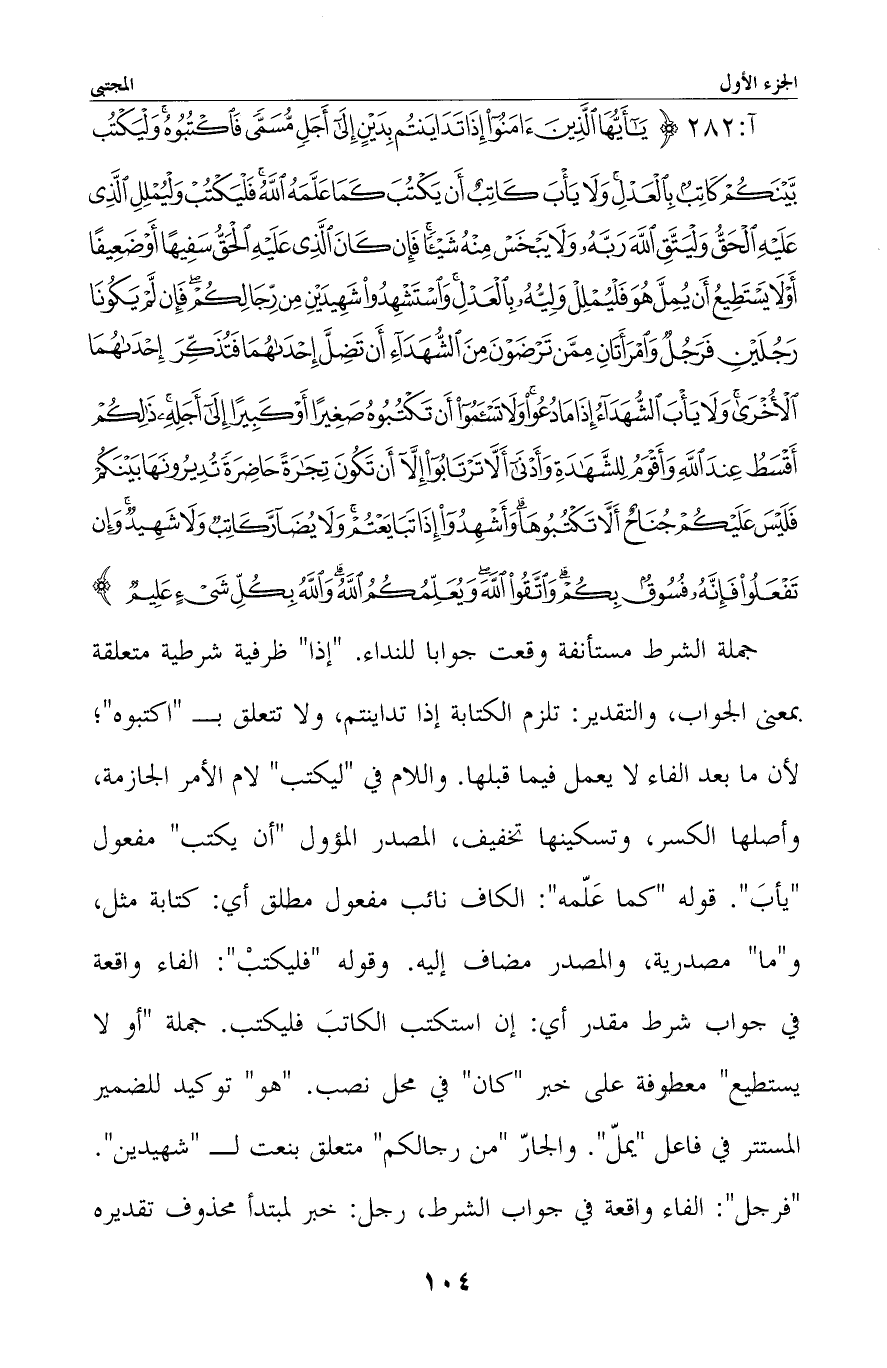 الجزء الأول المجتبى
آ:٢٨٢ ﴿ يَـٰٓأَيُّهَا ٱلَّذِينَ ءَامَنُوٓا۟ إِذَا تَدَايَنتُم بِدَيْنٍ إِلَىٰٓ أَجَلٍ مُّسَمًّى فَٱكْتُبُوهُ ۚ وَلْيَكْتُب
بَّيْنَكُمْ كَاتِبٌۢ بِٱلْعَدْلِ ۚ وَلَا يَأْبَ كَاتِبٌ أَن يَكْتُبَ كَمَا عَلَّمَهُ ٱللَّهُ ۚ فَلْيَكْتُبْ وَلْيُمْلِلِ ٱلَّذِى
عَلَيْهِ ٱلْحَقُّ وَلْيَتَّقِ ٱللَّهَ رَبَّهُۥ وَلَا يَبْخَسْ مِنْهُ شَيْـًٔا ۚ فَإِن كَانَ ٱلَّذِى عَلَيْهِ ٱلْحَقُّ سَفِيهًا أَوْ ضَعِيفًا
أَوْ لَا يَسْتَطِيعُ أَن يُمِلَّ هُوَ فَلْيُمْلِلْ وَلِيُّهُۥ بِٱلْعَدْلِ ۚ وَٱسْتَشْهِدُوا۟ شَهِيدَيْنِ مِن رِّجَالِكُمْ ۖ فَإِن لَّمْ يَكُونَا
رَجُلَيْنِ فَرَجُلٌ وَٱمْرَأَتَانِ مِمَّن تَرْضَوْنَ مِنَ ٱلشُّهَدَآءِ أَن تَضِلَّ إِحْدَىٰهُمَا فَتُذَكِّرَ إِحْدَىٰهُمَا
ٱلْأُخْرَىٰ ۚ وَلَا يَأْبَ ٱلشُّهَدَآءُ إِذَا مَا دُعُوا۟ ۚ وَلَا تَسْـَٔمُوٓا۟ أَن تَكْتُبُوهُ صَغِيرًا أَوْ كَبِيرًا إِلَىٰٓ أَجَلِهِۦ ۚ ذَٰلِكُمْ
أَقْسَطُ عِندَ ٱللَّهِ وَأَقْوَمُ لِلشَّهَـٰدَةِ وَأَدْنَىٰٓ أَلَّا تَرْتَابُوٓا۟ ۖ إِلَّآ أَن تَكُونَ تِجَـٰرَةً حَاضِرَةً تُدِيرُونَهَا بَيْنَكُمْ
فَلَيْسَ عَلَيْكُمْ جُنَاحٌ أَلَّا تَكْتُبُوهَا ۗ وَأَشْهِدُوٓا۟ إِذَا تَبَايَعْتُمْ ۚ وَلَا يُضَآرَّ كَاتِبٌ وَلَا شَهِيدٌ ۚ وَإِن
تَفْعَلُوا۟ فَإِنَّهُۥ فُسُوقٌۢ بِكُمْ ۗ وَٱتَّقُوا۟ ٱللَّهَ ۖ وَيُعَلِّمُكُمُ ٱللَّهُ ۗ وَٱللَّهُ بِكُلِّ شَىْءٍ عَلِيمٌ ﴾
جملة الشرط مستأنفة وقعت جوابا للنداء. "إذا" ظرفية شرطية متعلقة
بمعنى الجواب، والتقدير: تلزم الكتابة إذا تداينتم، ولا تتعلق بـــ "اكتبوه"؛
لأن ما بعد الفاء لا يعمل فيما قبلها. واللام في "ليكتب" لام الأمر الجازمة،
وأصلها الكسر، وتسكينها تخفيف، المصدر المؤول "أن يكتب" مفعول
"يأبَ". قوله "كما عَلّمه": الكاف نائب مفعول مطلق أي: كتابة مثل،
و"ما" مصدرية، والمصدر مضاف إليه. وقوله "فليكتبْ": الفاء واقعة
في جواب شرط مقدر أي: إن استكتب الكاتبَ فليكتب. جملة "أو لا
يستطيع" معطوفة على خبر "كان" في محل نصب. "هو" توكيد للضمير
المستتر في فاعل "يملّ". والجارّ "من رجالكم" متعلق بنعت لـــ "شهيدين".
"فرجل": الفاء واقعة في جواب الشرط، رجل: خبر لمبتدأ محذوف تقديره
١٠٤